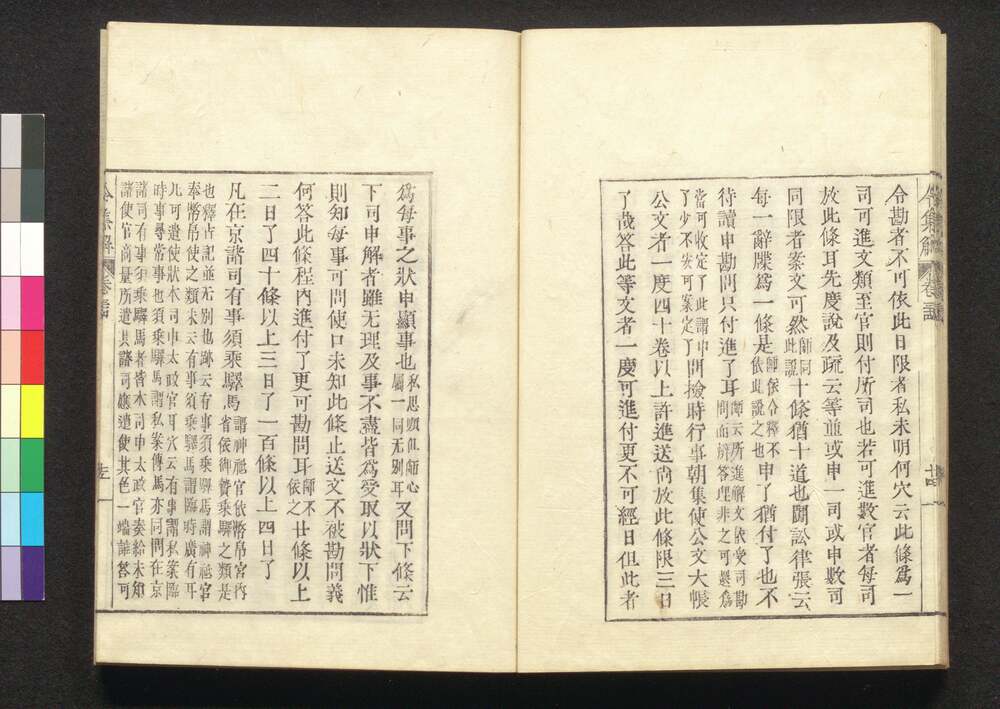 令勘者不可依此日限者私未明何穴云此條爲一
司可進文類至官則付所司也若可進數官者每司
放此條耳先度說及疏云等並或申一司或申數司
同限者案文可然師同此說十條猶十道也鬪訟律張云
每一辭牒爲一條是師依令釋不依此說之也申了猶付了也不
待讀申勘問只付進了耳師云所進解文依受司勘問而辨答理非之可畏爲
當可收定了此謂申了少不安可案定了問撿時行事朝集使公文大帳
公文者一度四十卷以上許進送尙放此條限三日
了哉答此等文者一度可進付更不可經日但此者
令集解
卷
爲每事之狀申顯事也私思頗但師心屬一同无别耳又問下條云
下司申解者雖无理及事不盡皆爲受取以狀下惟
則知每事可問使口未知此條止送文不被勘問義
何答此條程內進付了更可勘問耳師不依之廿條以上
二日了四十條以上三日了一百條以上四日了
凡在京諸司有事須乘驛馬謂神祗官依幣帛宮內省依御贄乘驛之類是
也釋古記並无别也跡云有事須乘驛馬謂神祗官
奉幣帛使之類朱云有事須乘驛馬謂臨時廣有耳
凡可遣使狀本司申太政官耳穴云有事謂私案臨
時事尋常事也須乘驛馬謂私案傳馬亦同問在京
諸司有事須乘驛馬者皆本司申太政官奏給未知
諸使官商量所遣其諸司遣使其色一端誰答可
令集解
卷